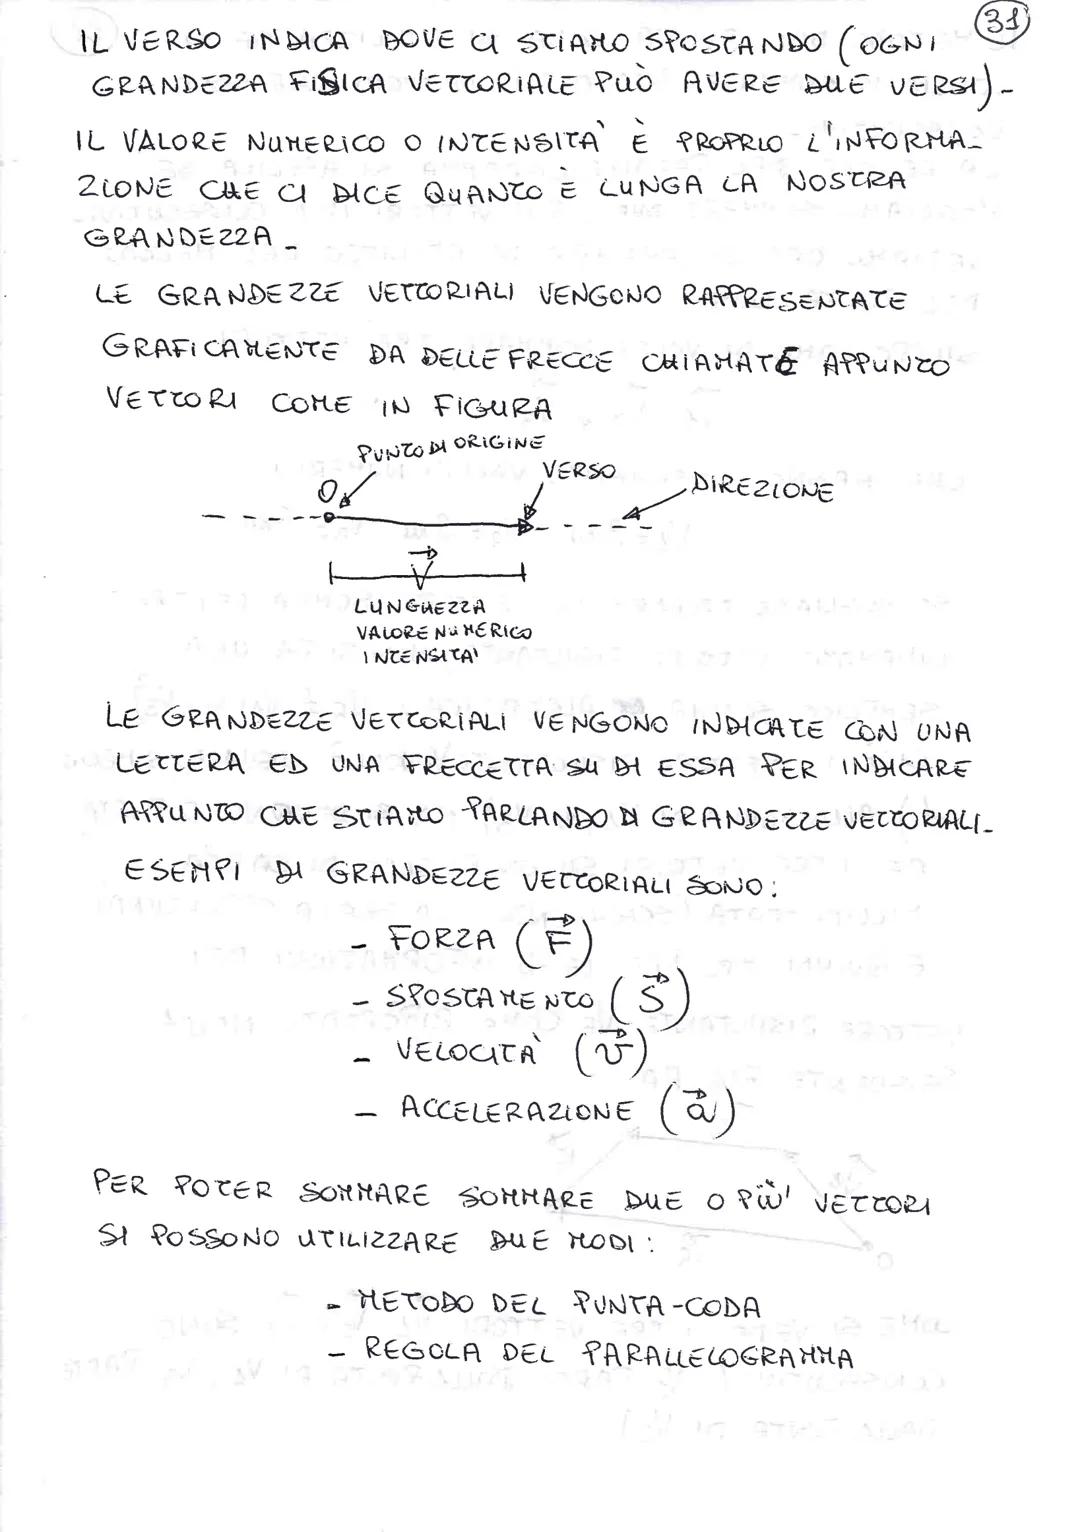 31
IL VERSO INDICA DOVE CI STIAMO SPOSTANDO (OGNI
GRANDEZZA FISICA VETTORIALE PUÒ AVERE DUE VERSI)-
IL VALORE NUMERICO O INTENSITA' È PROPRIO L'INFORMA-
ZIONE CHE CI DICE QUANTO È LUNGA LA NOSTRA
GRANDEZZA -
LE GRANDEZZE VETTORIALI VENGONO RAPPRESENTATE
GRAFICAMENTE DA DELLE FRECCE CHIAMATE APPUNTO
VETTORI COME IN FIGURA
PUNTO DI ORIGINE
VERSO
DIREZIONE
O
V⃗
LUNGHEZZA
VALORE NUMERICO
INTENSITA'
LE GRANDEZZE VETTORIALI VENGONO INDICATE CON UNA
LETTERA ED UNA FRECCETTA SU DI ESSA PER INDICARE
APPUNTO CHE STIAMO PARLANDO DI GRANDEZZE VETTORIALI-
ESEMPI DI GRANDEZZE VETTORIALI SONO:
- FORZA (F⃗)
- SPOSTAMENTO (S⃗)
- VELOCITÀ (v⃗)
- ACCELERAZIONE (a⃗)
PER POTER SOMMARE SOMMARE DUE O PIÙ' VETTORI
SI POSSONO UTILIZZARE DUE MODI:
- METODO DEL PUNTA-CODA
- REGOLA DEL PARALLELOGRAMMA